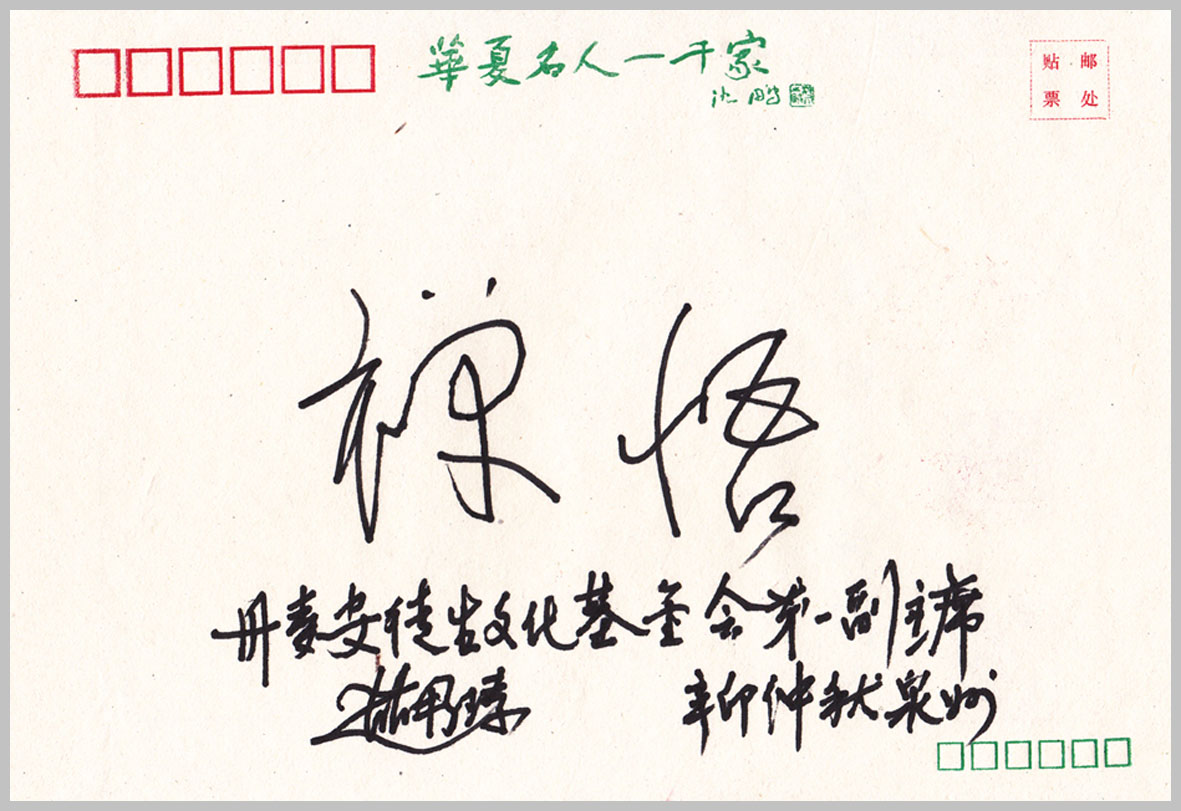 華夏名人一千家
沈鹏
贴 邮
票 处
禅悟
丹麦安徒生文化基金会第一副主席
辛卯仲秋泉州